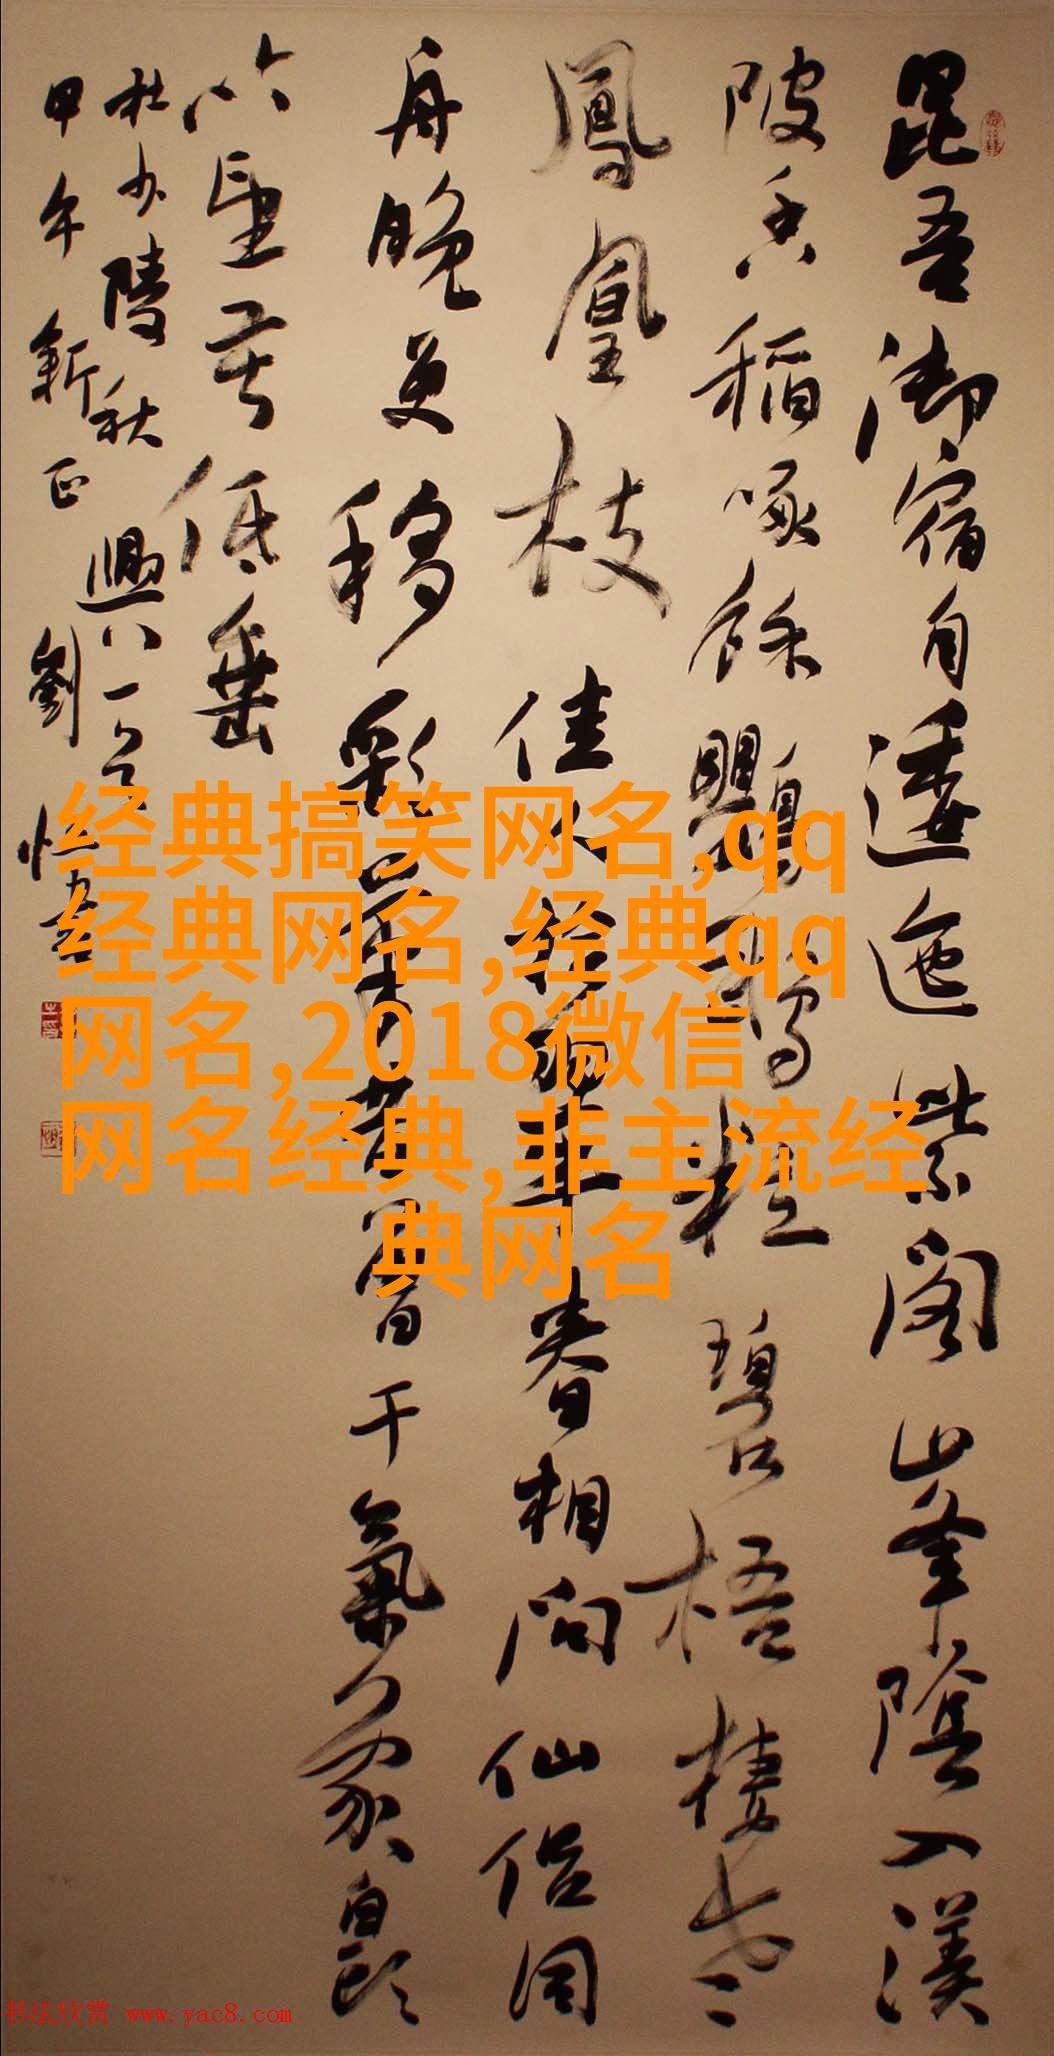 昆吾御宿自逶迤紫閣峯陰入渼
陂香稻啄餘鸚鵡粒碧梧棲老
鳳凰枝佳人拾翠春相问仙侣同
舟晚更移彩筆昔曾干氣象白頭
吟望苦低垂
杜少陵秋興八
甲午新正劉恒書
经典搞笑网名,qq
经典网名,经典qq
网名,2018微信
网名经典,非主流经
典网名
书法欣赏 www.yac8.com